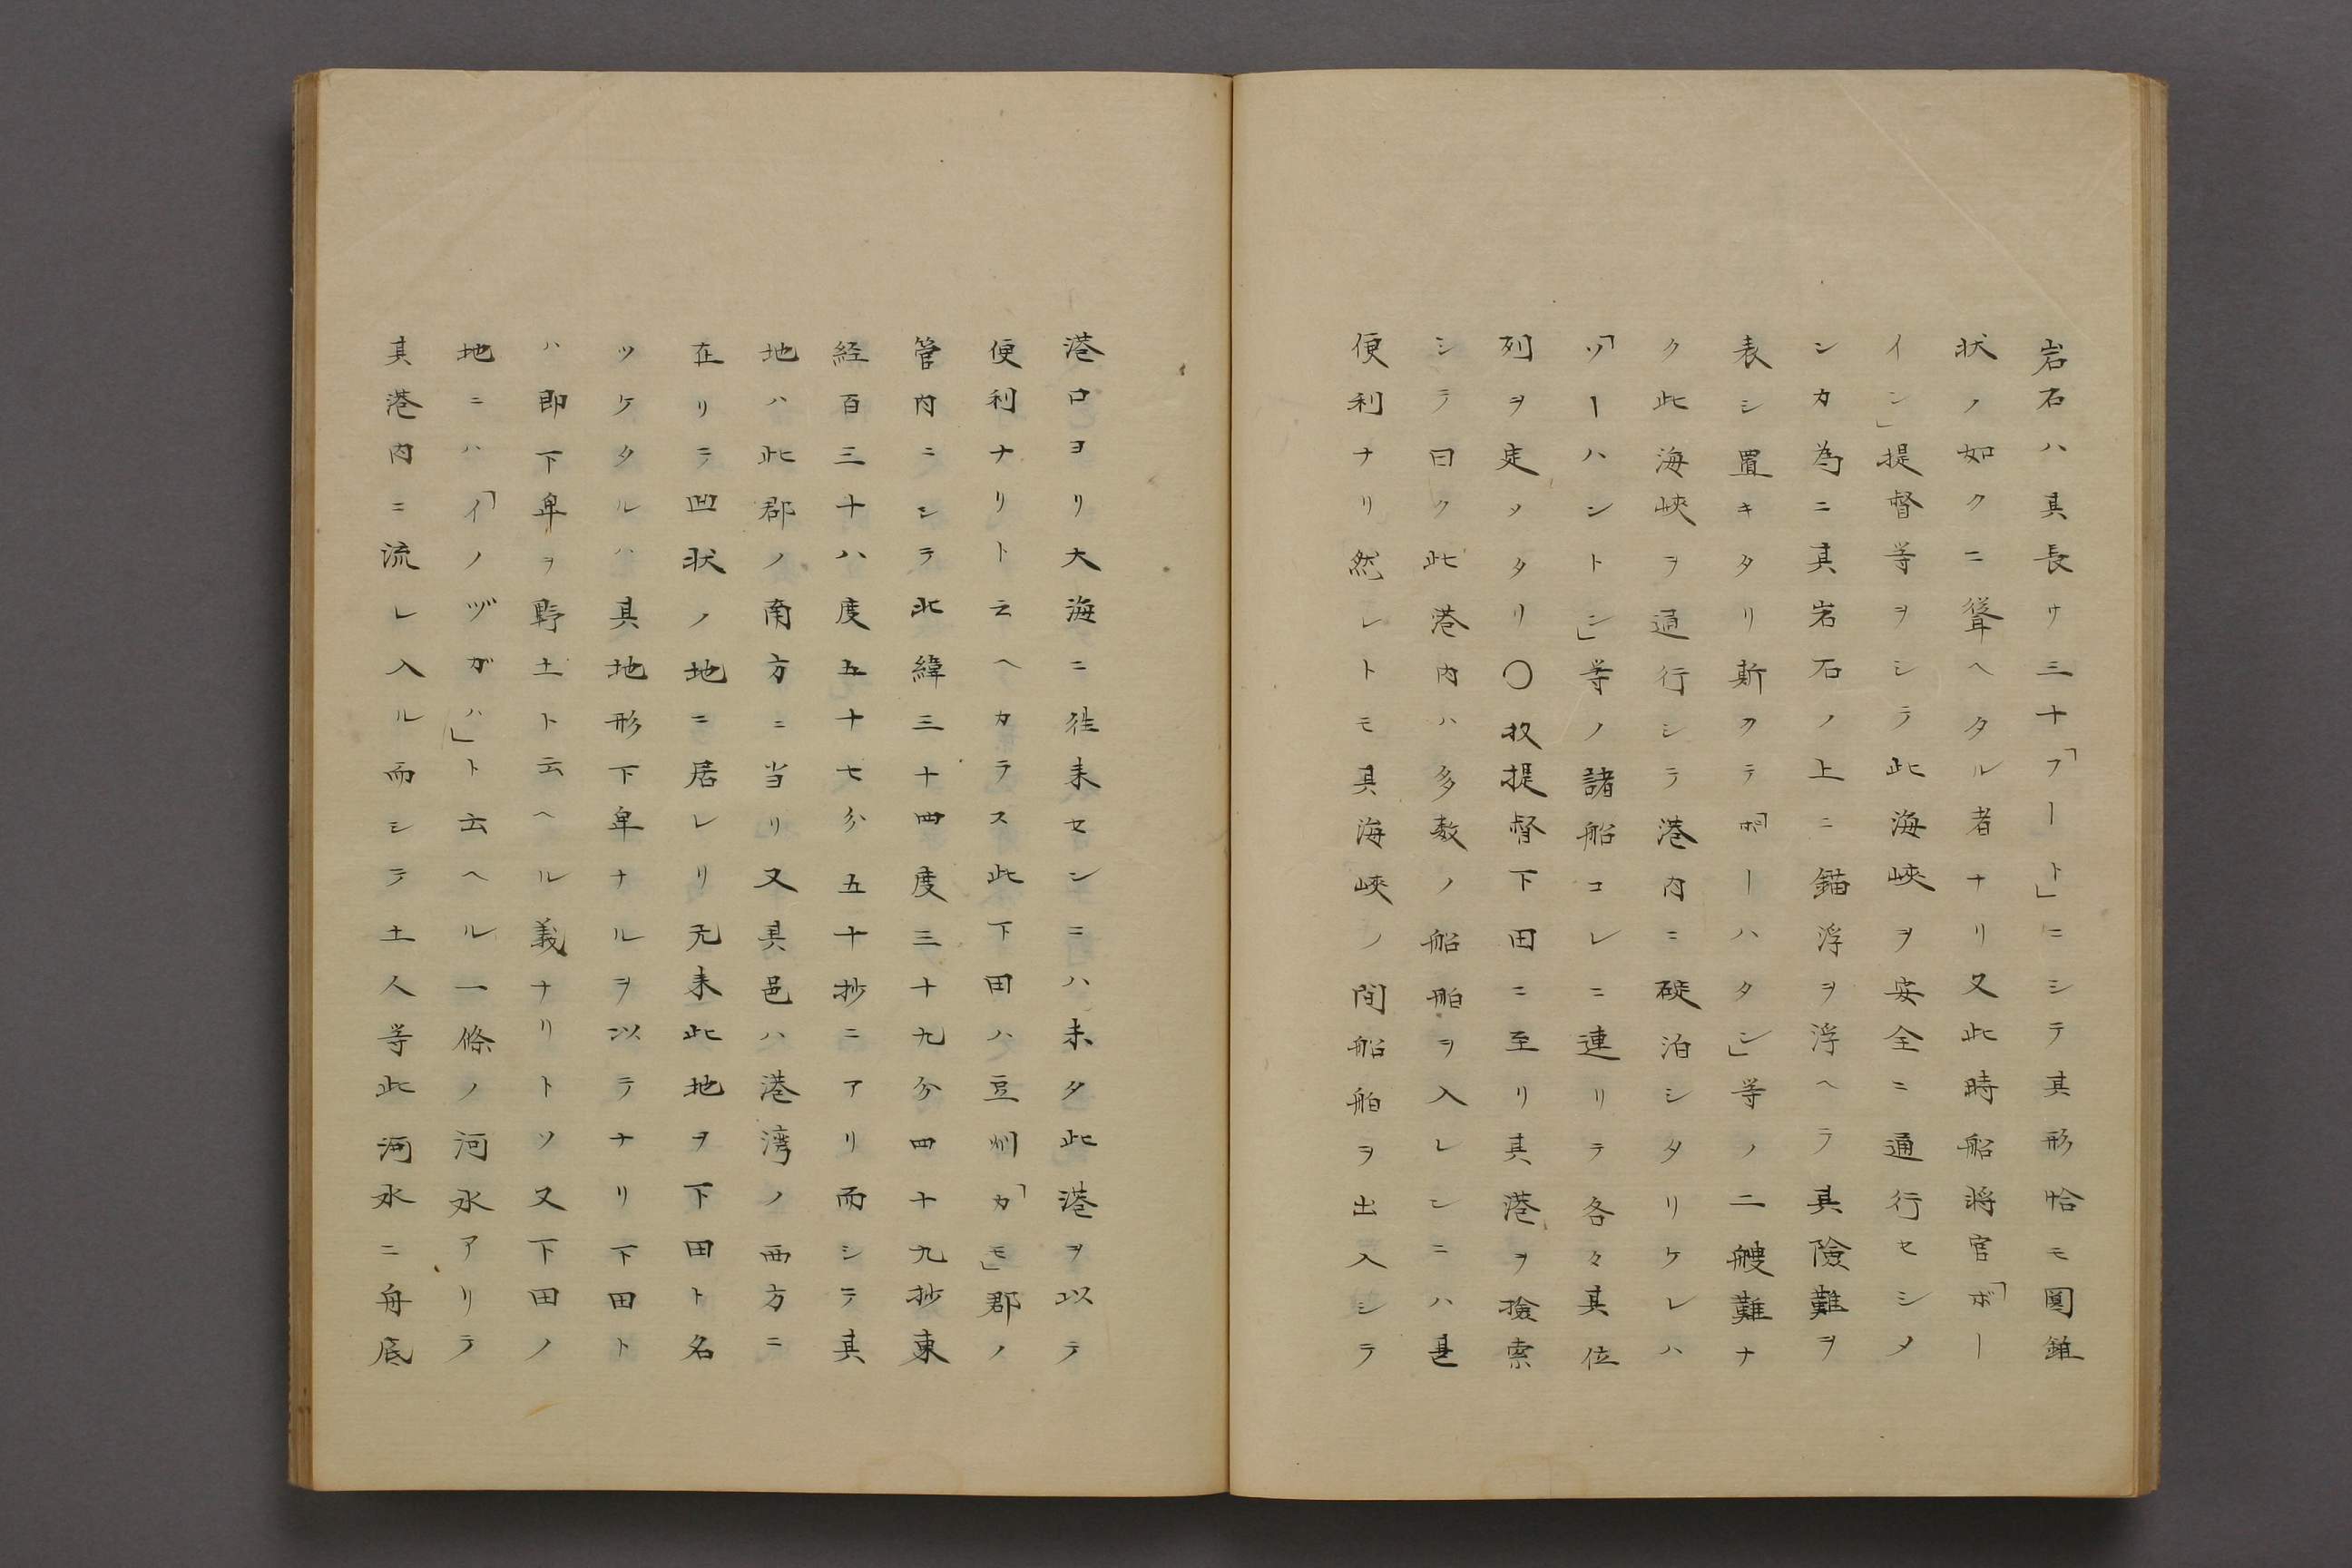 岩石ハ其長サ三十「フート」ニシテ其形恰モ圓錐
状ノ如クニ聳ヘタル者ナリ又此時船将官「ボー
イン」提督等ヲシテ此海峡ヲ安全ニ通行セシメ
ンカ為ニ其岩石ノ上ニ錨浮ヲ浮ヘテ其險難ヲ
表シ置キタリ斯クテ「ポーハタン」等ノ二艘難ナ
ク此海峡ヲ通行シテ港内ニ碇泊シタリケレハ
「ソーハントン」等ノ諸船コレニ連リテ各々其位
列ヲ定メタリ〇扨提督下田ニ至リ其港ヲ撿索
シテ曰ク此港内ハ多数ノ船舶ヲ入レンニハ甚
便利ナリ然レトモ其海峡ノ間船舶ヲ出入シテ
港口ヨリ大海ニ徃来センニハ未タ此港ヲ以テ
便利ナリト云ヘカラス此下田ハ豆州「カモ」郡ノ
管内ニシテ北緯三十四度三十九分四十九抄東
経百三十八度五十七分五十抄ニアリ而シテ其
地ハ此郡ノ南方ニ当リ又其邑ハ港湾ノ西方ニ
在リテ凹状ノ地ニ居レリ元来此地ヲ下田ト名
ツケタルハ其地形下卑ナルヲ以テナリ下田ト
ハ即下卑ヲ野土ト云ヘル義ナリトソ又下田ノ
地ニハ「イノヅガハ」ト云ヘル一條ノ河水アリテ
其港内ニ流レ入ル而シテ土人等此河水ニ舟底